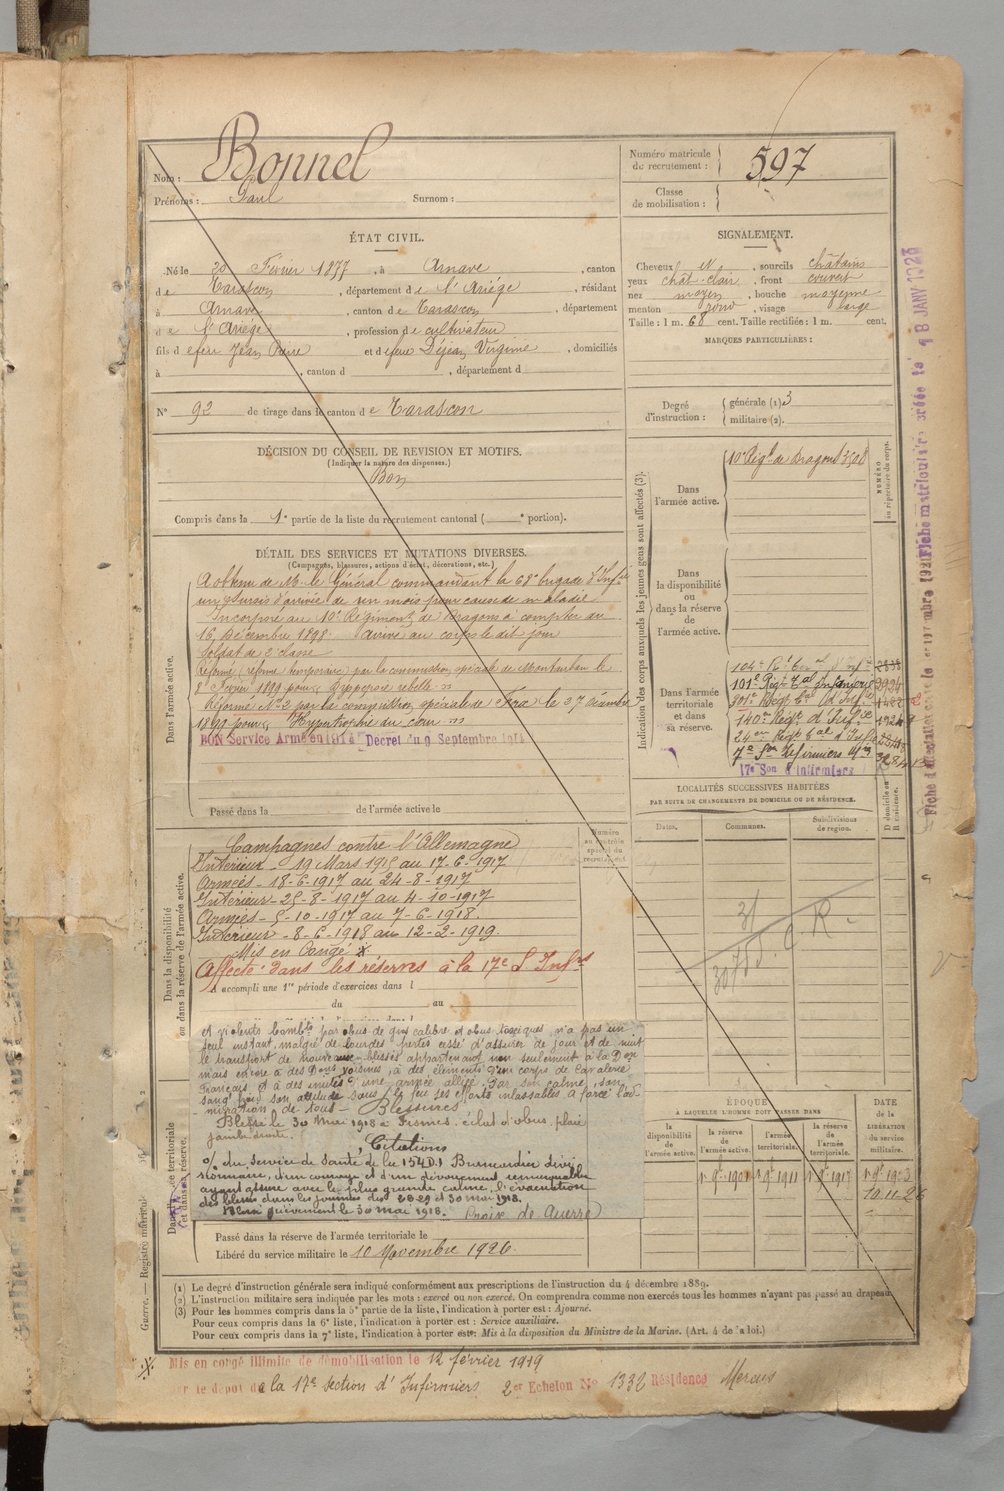 Nom : Bonnel
Prénoms : Paul Surnom :
Numéro matricule
de recrutement : 597
Classe
de mobilisation :
ÉTAT CIVIL.
Né le 20 Février 1877, à Arnave, canton
de Tarascon, département de l'Ariége, résidant
à Arnave, canton de Tarascon, département
de l'Ariége, profession de cultivateur
fils d efeu Jean Pierre et d efeue Déjean Virginie, domiciliés
à , canton d , département d
N° 92 de tirage dans le canton d e Tarascon
SIGNALEMENT.
Cheveux N, sourcils châtains
yeux chât-clair, front couvert
nez moyen, bouche moyenne
menton rond, visage large
Taille : 1 m. 68 cent. Taille rectifiée : 1 m. cent.
MARQUES PARTICULIÈRES :
Degré
d'instruction : générale (1) 3
militaire (2).
DÉCISION DU CONSEIL DE REVISION ET MOTIFS.
(Indiquer la nature des dispenses.)
Bon
Compris dans la 1e partie de la liste du recrutement cantonal ( e portion).
DÉTAIL DES SERVICES ET MUTATIONS DIVERSES.
(Campagnes, blessures, actions d'éclat, décorations, etc.)
Dans l'armée active.
A obtenu de M. le Général commandant la 68e brigade d'Infie
un sursis d'arrivée de un mois pour cause de maladie
Incorporé au 10e Régiment de Dragons à compter du
16 Décembre 1898. Arrivé au corps le dit jour
Soldat de 2e classe
Réformé (réforme temporaire) par la commission spéciale de Montauban le
8 Février 1899 pour
Réformé No 2 par la commission spéciale de Foix le 27 Décembre
1899 pour "Hypertrophie du cœur"
BON Service Armé en 1914 Décret du 9 Septembre 1914
Passé dans la de l'armée active le
Indication des corps auxquels les jeunes gens sont affectés (3).
NUMÉRO
au répertoire du corps.
Dans
l'armée active.
10e Régt de Dragons 3508
Dans
la disponibilité
ou
dans la réserve
de
l'armée active.
Dans l'armée
territoriale
et dans
sa réserve.
104e Rt Teal d'Infie
101e Régt Tal Infanterie
140e Régt d'Infie
24e Régt Tal d'Infie
7e Son Infirmiers Mres
17e Son d'Infirmiers
LOCALITÉS SUCCESSIVES HABITÉES
PAR SUITE DE CHANGEMENTS DE DOMICILE OU DE RÉSIDENCE.
Dates. Communes. Subdivisions
de région. D domicile ou
R résidence.
Dans la disponibilité
ou dans la réserve de l'armée active.
Campagnes contre l'Allemagne
Intérieur - 19 Mars 1915 au 17-6-1917
Armées - 18-6-1917 au 24-8-1917
Intérieur - 25-8-1917 au 4-10-1917
Armées - 5-10-1917 au 7-6-1918.
Intérieur - 8-6-1918 au 12-2-1919.
Mis en Congé
Affecté dans les réserves à la 17e S Infrs
A accompli une 1re période d'exercices dans l
du au
et violents bombts par obus de gros calibre et obus toxiques, n'a pas un
seul instant, malgré de lourdes pertes cessé d'assurer de jour et de nuit
le transport de nouveaux blessés appartenant non seulement à la Don
mais encore à des Dons voisines, à des éléments d'un corps de Cavalerie
Français et à des unités d'une armée alliée. Par son calme, son
sang froid, son attitude sous le feu ses efforts inlassables a forcé l'ad-
-miration de tous — Blessures
Blessé le 30 Mai 1918 à Fismes. éclat d'obus, plaie
jambe droite.
Citations
O/ du Service de Santé de la 154 D.I Brancardier divi-
sionnaire, d'un courage et d'un dévouement remarquables
ayant assuré avec le plus grande calme, l'évacuation
des blessés dans les journées des 28-29 et 30 mai 1918.
Blessé grièvement le 30 mai 1918. Croix de Guerre
Passé dans la réserve de l'armée territoriale le
Libéré du service militaire le 10 Novembre 1926.
ÉPOQUE
À LAQUELLE L'HOMME DOIT PASSER DANS
DATE
de la
LIBÉRATION
du service
militaire.
la
disponibilité
de
l'armée active.
la réserve
de
l'armée active.
l'armée
territoriale.
la réserve
de
l'armée
territoriale.
1901 1911 1917 1923
10.11.26
(1) Le degré d'instruction générale sera indiqué conformément aux prescriptions de l'instruction du 4 décembre 1889.
(2) L'instruction militaire sera indiquée par les mots : exercé ou non exercé. On comprendra comme non exercés tous les hommes n'ayant pas passé au drapeau.
(3) Pour les hommes compris dans la 5e partie de la liste, l'indication à porter est : Ajourné.
Pour ceux compris dans la 6e liste, l'indication à porter est : Service auxiliaire.
Pour ceux compris dans la 7e liste, l'indication à porter est : Mis à la disposition du Ministre de la Marine. (Art. 4 de la loi.)
Mis en congé illimité de démobilisation le 12 février 1919
par le dépot de la 17e section d'Infirmiers 2er Echelon No 1332 Résidence Mercus
Guerre. — Registre matricule